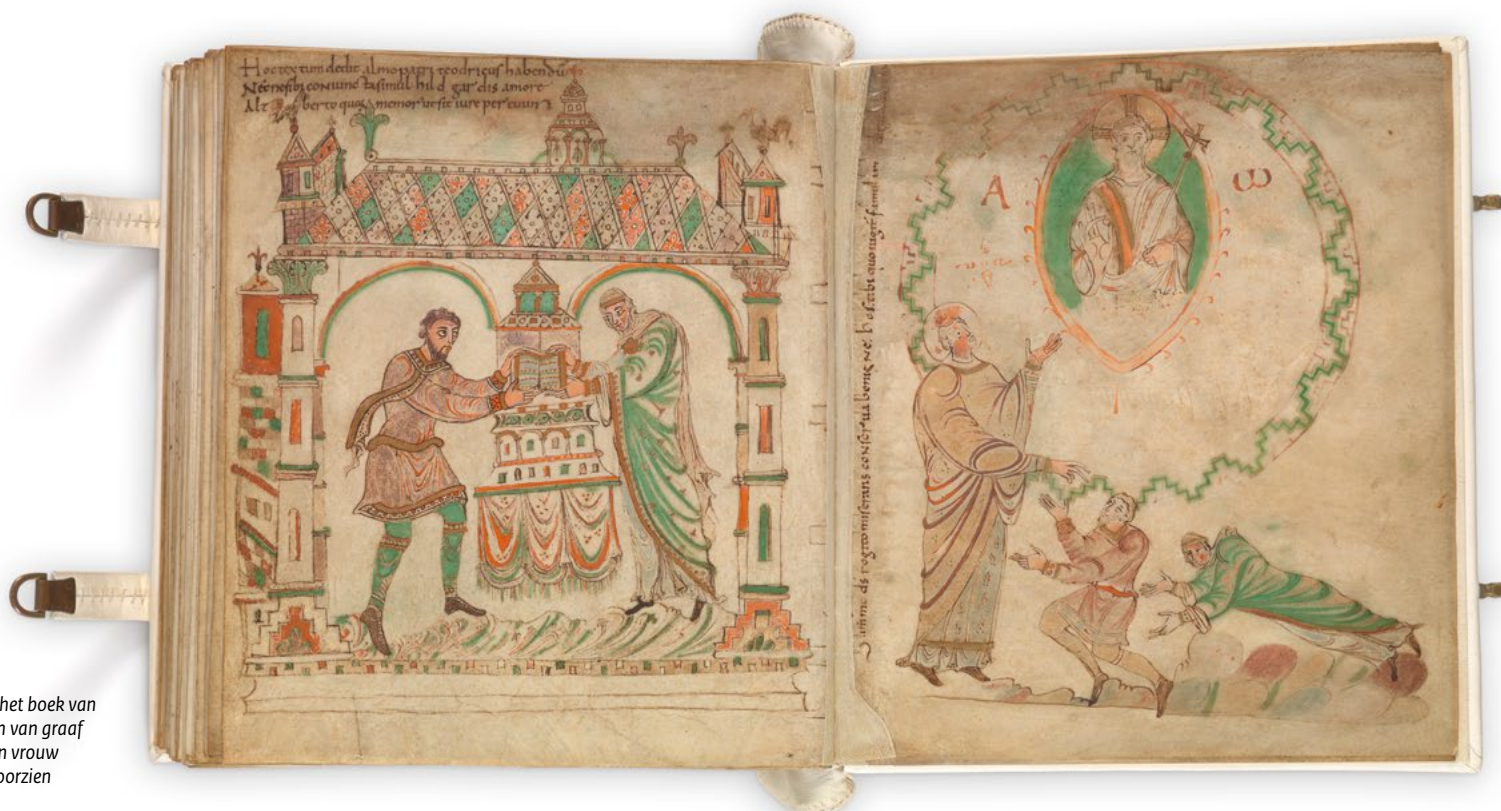 Hoc textum dedit almo patri teodricus habendū
Necne sibi coniuncta simul hild gardis amore
Alt berto quo memor ut sit iure per euum
A ω
Summe ds rogito miserans conserua benigne hos tibi quo famulari
het boek van
n van graaf
n vrouw
oorzien